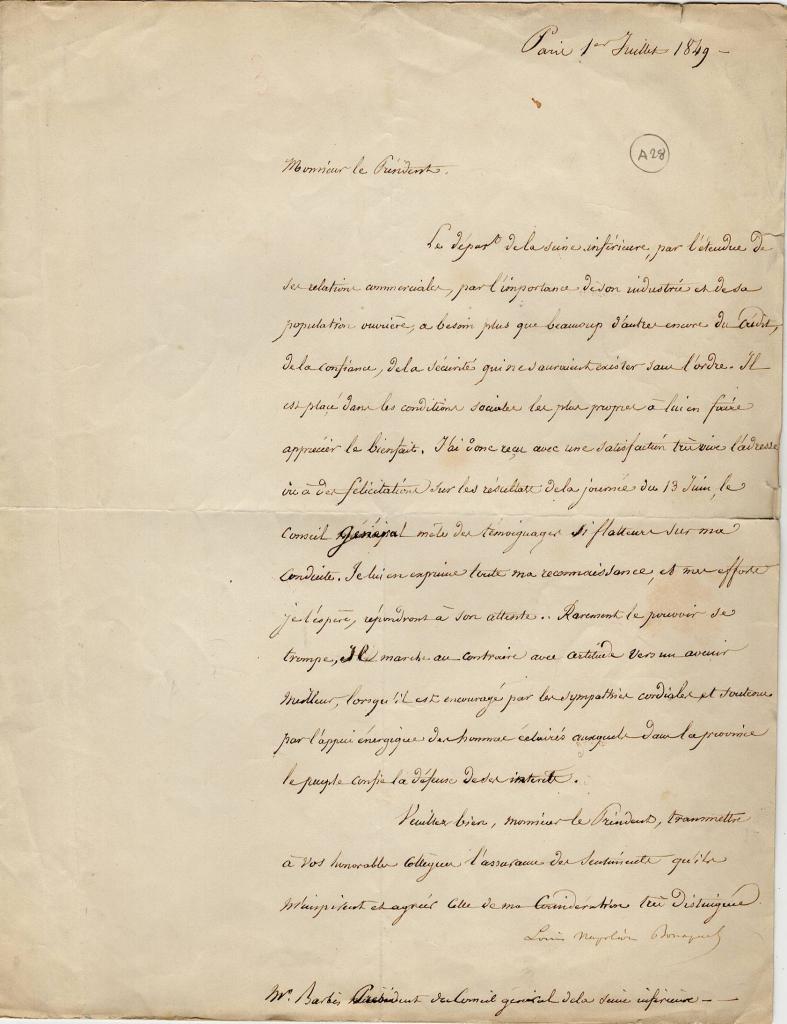 Paris 1er Juillet 1849 —
A28
Monsieur le Président.
Le départ. de la seine inférieure, par l'étendue de
ses relations commerciales, par l'importance de son industrie et de sa
population ouvrière, a besoin plus que beaucoup d'autres encore du Crédit,
de la confiance, de la sécurité qui ne sauraient exister sans l'ordre. Il
est placé dans les conditions sociales les plus propres à lui en faire
apprécier le bienfait. J'ai donc reçu avec une satisfaction très vive l'adresse
où à des félicitations sur les résultats de la journée du 13 Juin, le
Conseil général mêle des témoignages si flatteurs sur ma
conduite. Je lui en exprime toute ma reconnaissance, et mes efforts
je l'espère, répondront à son attente. Rarement le pouvoir se
trompe, Il marche au contraire avec certitude vers un avenir
meilleur, lorsqu'il est encouragé par les sympathies cordiales et soutenu
par l'appui énergique des hommes éclairés auxquels dans la province
le peuple confie la défense de ses intérêts.
Veuillez bien, monsieur le Président, transmettre
à vos honorables collègues l'assurance des sentiments qu'ils
m'inspirent et agréer celle de ma Considération très Distinguée.
Louis Napoléon Bonaparte
Mr. Barbet Président du Conseil général de la seine inférieure —